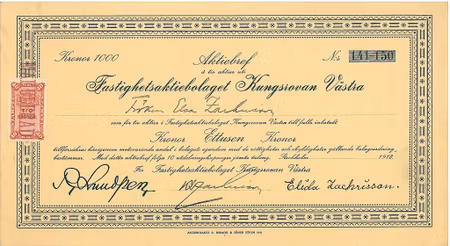 Kronor 1000
Aktiebref
No 141-150
å tio aktier uti
Fastighetsaktiebolaget Kungsrovan Västra
Fröken Elsa Zachrisson
som för tio aktier i Fastighetsaktiebolaget Kungsrovan Västra till fullo inbetalt
Kronor Ettusen Kronor
tillförsäkras härigenom motsvarande andel i bolaget egendom med de rättigheter och skyldigheter gällande bolagsordning
bestämmer. Med detta aktiebref följa 10 utdelningskuponger jämte talong. Stockholm 1912
För Fastighetsaktiebolaget Kungsrovan Västra
Elida Zachrisson.